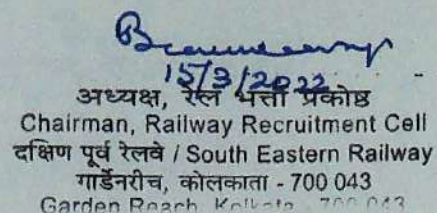 15/3/2022
अध्यक्ष, रेल भर्ती प्रकोष्ठ
Chairman, Railway Recruitment Cell
दक्षिण पूर्व रेलवे / South Eastern Railway
गार्डेनरीच, कोलकाता - 700 043
Garden Reach, Kolkata - 700 043